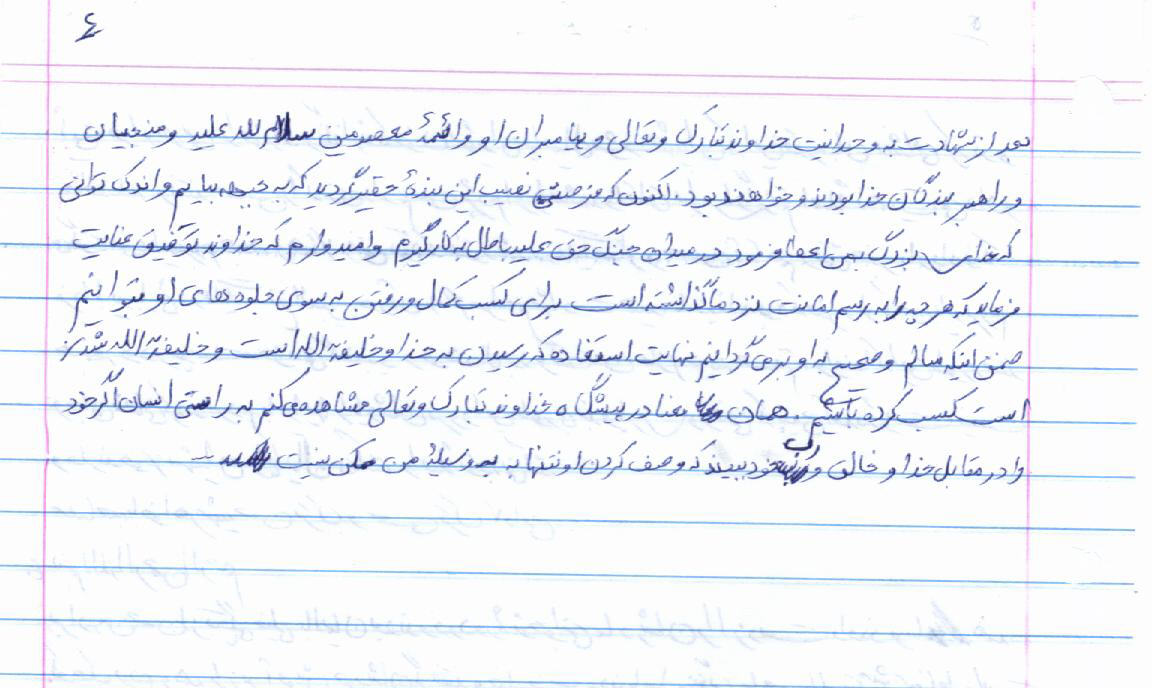 ٤
بعد از شهادت به وحدانیت خداوند تبارک و تعالی و پیامبران او و ائمۀ معصومین سلام لله علیه و منجیان
و راهبر بندگان خدا بودند و خواهند بود. اکنون که فرصتی نصیب این بندۀ حقیر گردید که به جبهه بیایم و اندک توانی
که خدای بزرگ بمن اعطا فرمود در میدان جنگ حق علیه باطل به کار گیرم و امیدوارم که خداوند توفیق عنایت
فرماید که هر چه را به رسم امانت نزد ما گذاشته است برای کسب کمال و رفتن به سوی جلوه های او بتوانیم
ضمن اینکه سالم و صحیح به او برمی گردانیم نهایت استفاده که رسیدن به خدا و خلیفة الله است و خلیفة الله شدن
است کسب کرده باشیم. همان معنا در پیشگاه خداوند تبارک و تعالی مشاهده می کنم به راستی انسان اگر خود
را در مقابل خدا و خالق و رب خود ببیند که وصف کردن او تنها به وسیلۀ من ممکن نیست